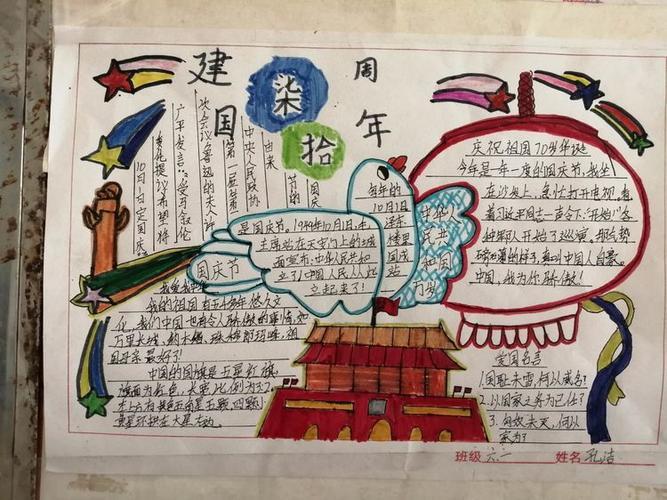 建国
柒拾
周年
国庆
节的
由来
中央人民政协
第一届第一
次会议鲁迅的夫人许
广平发言:"受马叙伦
委托提议希望将
10月1日定国庆
国庆节
每年的
10月1日
是国庆节。1949年10月1日,毛泽东
主席站在天安门上的城楼里
面宣布:中华人民共和国成
立了!中国人民从此站
立起来了!
中华人
民共
和国
万岁
庆祝祖国70岁华诞
今年是一年一度的国庆节,我坐
在沙发上,急忙打开电视,看
着习近平同志一声令下:"开始!"各
种部队开始了巡演,那气势
中国,我为你骄傲!
我的祖国有五千多年悠久文
化,我们中国也有令人骄傲的事情,如
万里长城,
祖
国母亲最好了!
中国的国旗是五星红旗,
旗面为红色,长宽比例为3:2,
左上方有黄色五角星五颗,四颗小
黄星环拱在大星右边。
爱国名言
1.国耻未雪,何以成名?
2.以国家之务为己任
3.匈奴未灭,何以
家为?
班级 六.一 姓名 孔洁